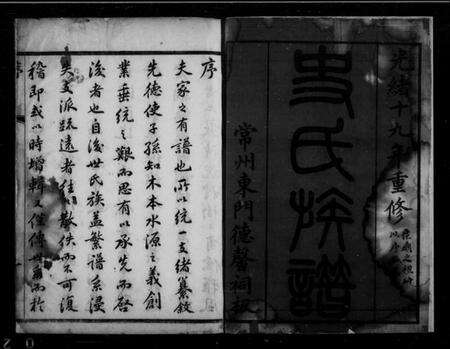 光緒十九年重修
史氏族譜
常州東門德馨祠
序
夫家之有譜也所以統一支緒纂敘
先德使子孫知木本水源之義創
業垂統之艱而思有以承先而啓
後者也自後世氏族益繁譜系漫
支派疏遠者往往散佚而不可復
稽即或以時增輯又僅傳世而於
序
0 2